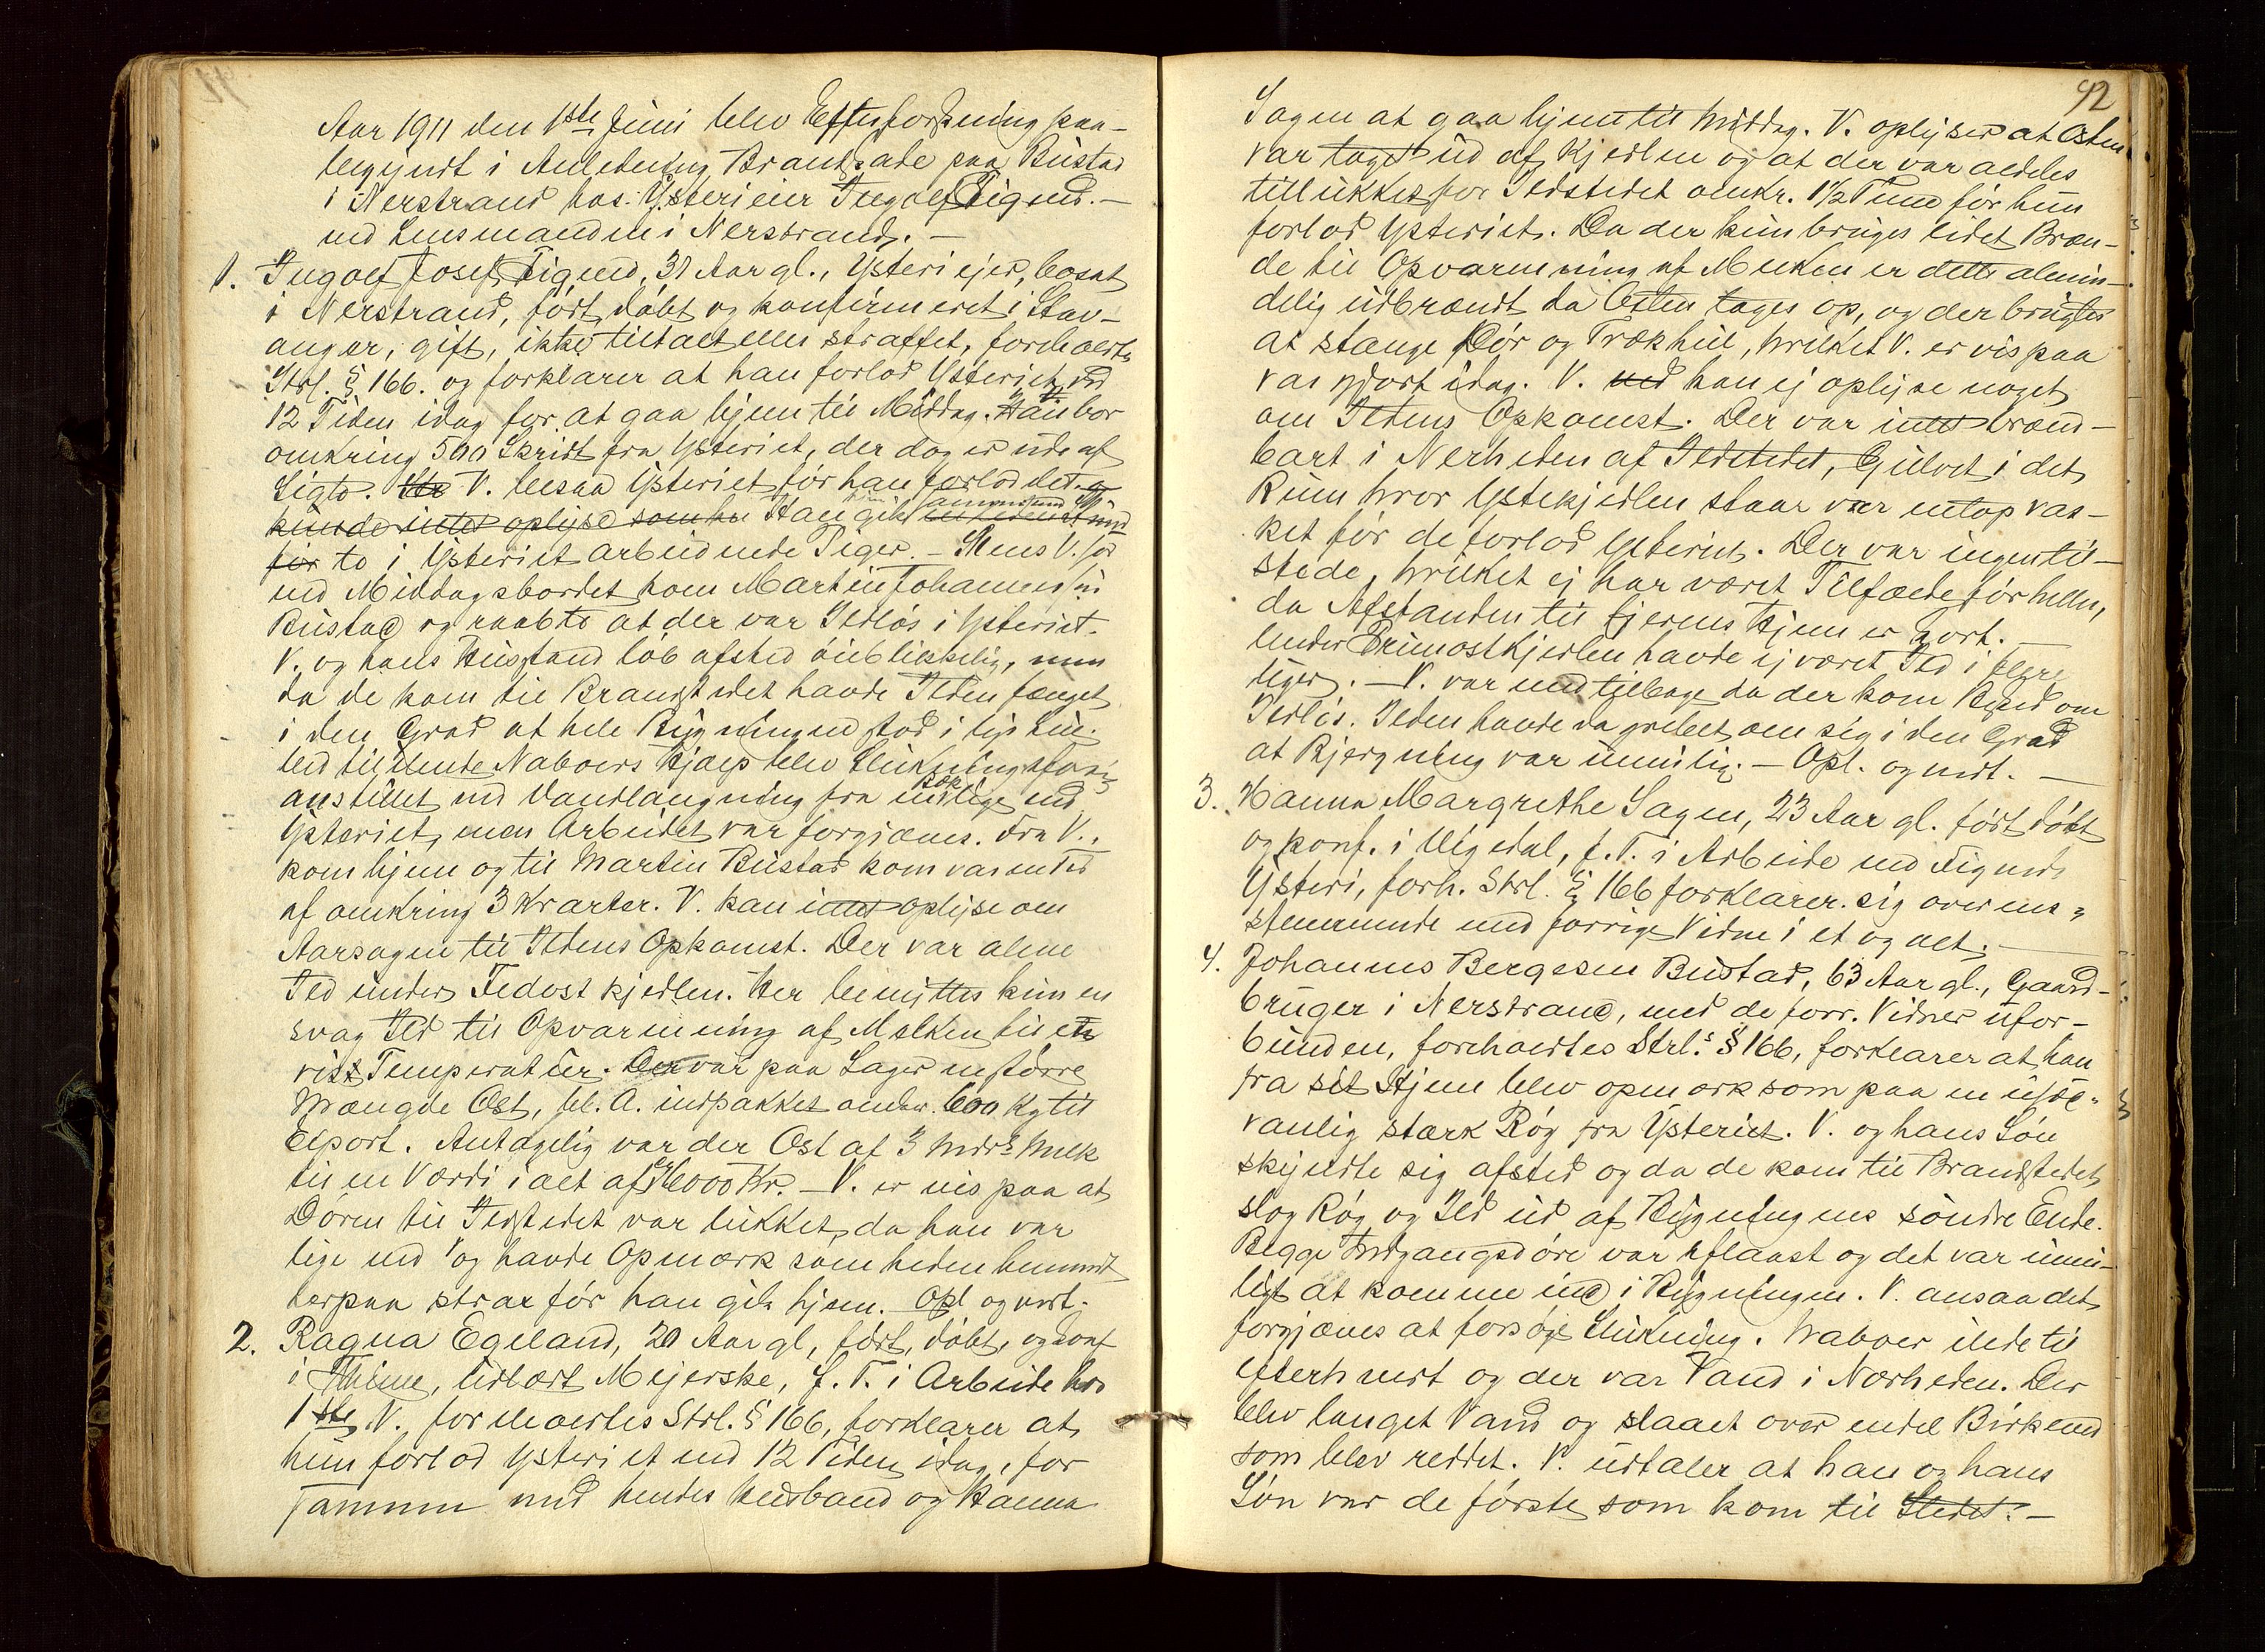 Aar 1911 den 1ste Juni blev Efterforskning paa-
begyndt i Anledning Brandskade paa Bustad
i Nerstrand hos Ysterieier Ingolf Tigned.—
ved Lensmanden i Nerstrand.—
1. Ingolf Josef Tigned, 31 Aar gl., Ysteriejer, bosat
i Nerstrand, født, døbt og konfirmeret i Stav-
anger, gift, ikke tiltalt eller straffet, foreholdt
Strl. § 166. og forklarer at han forlod Ysteriet ved
12 Tiden idag for at gaa hjem til Middag. Han bor
omkring 500 Skridt fra Ysteriet, der dog er ude af
Sigte. V. besaa Ysteriet før han forlod det og
kunde intet oplyse som Han gik sammen med
før to i Ysteriet arbeidende Piger.— Mens V. sad
ved Middagsbordet kom Martin Johannessen
Bustad og raabte at der var Ildløs i Ysteriet.
V. og hans Husstand løb afsted øieblikkelig, men
da de kom til Brandstedet havde Ilden fænget
i den Grad at hele Bygningen stod i lys Lue.
Ved tililende Naboers Hjælp blev Slukningsforsøg
anstillet med Vandlangning fra en Bæk lige ved
Ysteriet, men Arbeidet var forgjæves. Fra V.
kom hjem og til Martin Bustad kom var en Tid
af omkring 3 Kvarter. V. kan intet oplyse om
Aarsagen til Ildens Opkomst. Der var alene
Ild under Fedostkjedlen. Her benyttes kun en
svag Ild til Opvarmning af Melken til en
vis Temperatur. Der var paa Lager en større
Mængde Ost, bl. A. indpakket omkr. 600 Kg til
Export. Antagelig var der Ost af 3 Mdrs Melk
til en Værdi i alt af ca 4000 Kr.— V. er vis paa at
Døren til Ildstedet var lukket, da han var
lige ved og havde Opmærksomheden henvendt
herpaa strax før han gik hjem. Opl og vedt.
2. Ragna Egeland, 20 Aar gl, født, døbt, og konf
i Thime, udlært Mejerske, f. T. i Arbeide hos
1ste V. foreholdtes Strl. § 166, forklarer at
hun forlod Ysteriet ved 12 Tiden idag, for
sammen med hendes Husbond og Hanna
92
Sagen at gaa hjem til Middag. V. oplyser at Osten
var taget ud af Kjedlen og at der var aldeles
tillukket for Ildstedet omkr. 1½ Time før hun
forlod Ysteriet. Da der kun bruges lidet Bræn-
de til Opvarmning af Melken er dette almin-
delig udbrændt da Osten tages op, og der bruges
at stænge Dør og Trækhul, hvilket V. er vis paa
var gjort idag. V. ved kan ej oplyse noget
om Ildens Opkomst. Der var intet brænd-
bart i Nerheden af Ildstedet, Gulvet i det
Rum hvor Ystekjedlen staar var netop vas-
ket før de forlod Ysteriet. Der var ingen til-
stede, hvilket ej har været Tilfælde før heller,
da Afstanden til Eierens Hjem er kort.—
Under Primostkjedlen havde ej været Ild i flere
Uger.— V. var med tilbage da der kom Bud om
Ildløs. Ilden havde da grebet om sig i den Grad
at Bjergning var umulig.— Opl. og vedt.—
3. Hanna Margrethe Sagen, 23 Aar gl. født døbt
og konf. i Vigedal, f. T. i Arbeide ved Tigneds
Ysteri, forh. Strl. § 166 forklarer sig overens=
stemmende med forrige Vidne i et og alt.—
4. Johannes Bergesen Bustad, 63 Aar gl., Gaard-
bruger i Nerstrand, med de forr. Vidner ufor-
bunden, foreholdtes Strl.s § 166, forklarer at han
fra sit Hjem blev opmærksom paa en usæd-
vanlig stærk Røg fra Ysteriet. V. og hans Søn
skyndte sig afsted og da de kom til Brandstedet
slog Røg og Ild ud af Bygningens søndre Ende.
Begge Indgangsdøre var aflaast og det var umu-
ligt at komme ind i Bygningen. V. ansaa det
forgjæves at forsøge Slukning. Naboer ilede til
efterhvert og der var Vand i Nærheden. Der
blev langet Vand og slaaet over endel Birkeved
som blev reddet. V. udtaler at han og hans
Søn var de første som kom til Stedet.—